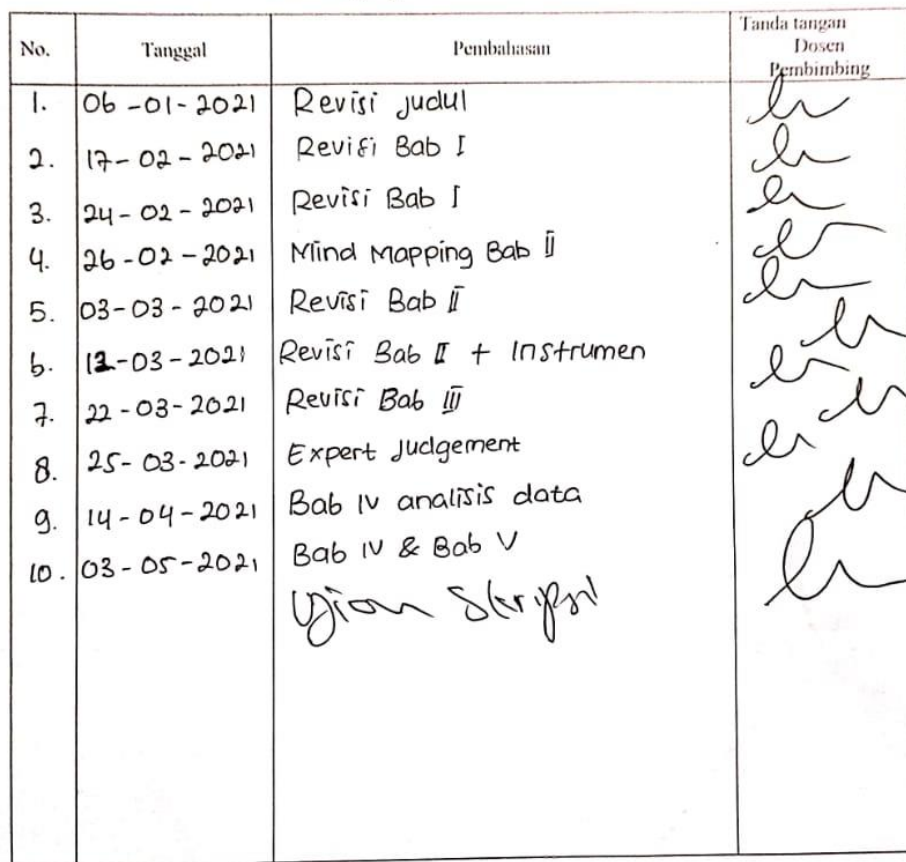 No. Tanggal Pembahasan Tanda tangan Dosen Pembimbing
1. 06-01-2021 Revisi judul
2. 17-02-2021 Revisi Bab I
3. 24-02-2021 Revisi Bab I
4. 26-02-2021 Mind Mapping Bab II
5. 03-03-2021 Revisi Bab II
6. 12-03-2021 Revisi Bab II + Instrumen
7. 22-03-2021 Revisi Bab III
8. 25-03-2021 Expert Judgement
9. 14-04-2021 Bab IV analisis data
10. 03-05-2021 Bab IV & Bab V
Ujian Skripsi